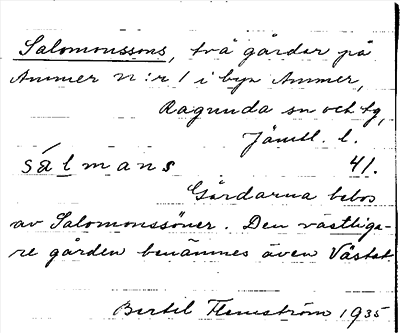 Salomonssons, två gårdar på
Ammer nr 1 i byn Ammer,
Ragunda sn och tg,
Jämtl. l.
sálmans 41.
Gårdarna bebos
av Salomonssöner. Den västliga-
re gården benämnes även Västat
Bertil Flemström 1935